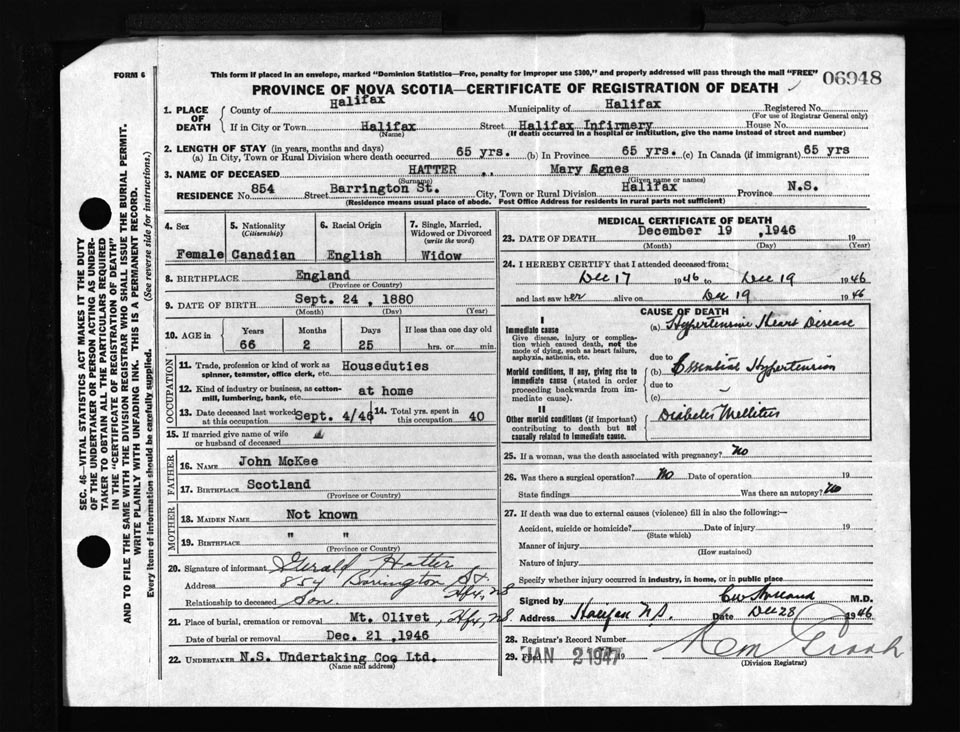 FORM 6
This form if placed in an envelope, marked "Dominion Statistics—Free, penalty for improper use $300," and properly addressed will pass through the mail "FREE"
06948
PROVINCE OF NOVA SCOTIA—CERTIFICATE OF REGISTRATION OF DEATH
1. PLACE OF DEATH
County of Halifax Municipality of Halifax Registered No.
(For use of Registrar General only)
If in City or Town Halifax Street Halifax Infirmery House No.
(Name) (If death occurred in a hospital or institution, give the name instead of street and number)
2. LENGTH OF STAY (in years, months and days)
(a) In City, Town or Rural Division where death occurred 65 yrs. (b) In Province 65 yrs. (c) In Canada (if immigrant) 65 yrs
3. NAME OF DECEASED HATTER .. Mary Agnes
(Surname) (Given name or names)
RESIDENCE No. 854 Street Barrington St. City, Town or Rural Division Halifax Province N.S.
(Residence means usual place of abode. Post Office Address for residents in rural parts not sufficient)
4. Sex
Female
5. Nationality
(Citizenship)
Canadian
6. Racial Origin
English
7. Single, Married, Widowed or Divorced
(write the word)
Widow
8. BIRTHPLACE England
(Province or Country)
9. DATE OF BIRTH Sept. 24, 1880
(Month) (Day) (Year)
10. AGE in Years Months Days If less than one day old
66 2 25 hrs. or min.
OCCUPATION
11. Trade, profession or kind of work as spinner, teamster, office clerk, etc. Houseduties
12. Kind of industry or business, as cotton-mill, lumbering, bank, etc. at home
13. Date deceased last worked at this occupation Sept. 4/46 14. Total yrs. spent in this occupation 40
15. If married give name of wife or husband of deceased
FATHER
16. NAME John McKee
17. BIRTHPLACE Scotland
(Province or Country)
MOTHER
18. MAIDEN NAME Not known
19. BIRTHPLACE " "
(Province or Country)
20. Signature of informant Gerald Hatter
Address 854 Barrington St. Hfx, NS
Relationship to deceased Son.
21. Place of burial, cremation or removal Mt. Olivet, Hfx, NS.
Date of burial or removal Dec. 21, 1946
22. UNDERTAKER N.S. Undertaking Coo Ltd.
(Name and address)
MEDICAL CERTIFICATE OF DEATH
23. DATE OF DEATH December 19 ,1946 19
(Month) (Day) (Year)
24. I HEREBY CERTIFY that I attended deceased from:
Dec 17 1946 to Dec 19 1946
and last saw her alive on Dec 19 1946
CAUSE OF DEATH
I
Immediate cause
Give disease, injury or complication which caused death, not the mode of dying, such as heart failure, asphyxia, asthenia, etc.
(a) Hypertensive Heart Disease
due to
Morbid conditions, if any, giving rise to immediate cause (stated in order proceeding backwards from immediate cause).
(b) Essential Hypertension
due to
(c)
II
Other morbid conditions (if important) contributing to death but not causally related to immediate cause.
Diabetes Mellitus
25. If a woman, was the death associated with pregnancy? No
26. Was there a surgical operation? No Date of operation 19
State findings Was there an autopsy? No
27. If death was due to external causes (violence) fill in also the following:—
Accident, suicide or homicide? Date of injury 19
(State which)
Manner of injury
(How sustained)
Nature of injury
Specify whether injury occurred in industry, in home, or in public place
Signed by M.D.
Address Halifax N.S. Date Dec 28 1946
28. Registrar's Record Number
29. Filed JAN 2 1947 19
(Division Registrar)
SEC. 46—VITAL STATISTICS ACT MAKES IT THE DUTY
OF THE UNDERTAKER OR PERSON ACTING AS UNDER-
TAKER TO OBTAIN ALL THE PARTICULARS REQUIRED
IN THE "CERTIFICATE OF REGISTRATION OF DEATH"
AND TO FILE THE SAME WITH THE DIVISION REGISTRAR WHO SHALL ISSUE THE BURIAL PERMIT.
WRITE PLAINLY WITH UNFADING INK. THIS IS A PERMANENT RECORD.
Every item of information should be carefully supplied. (See reverse side for instructions.)